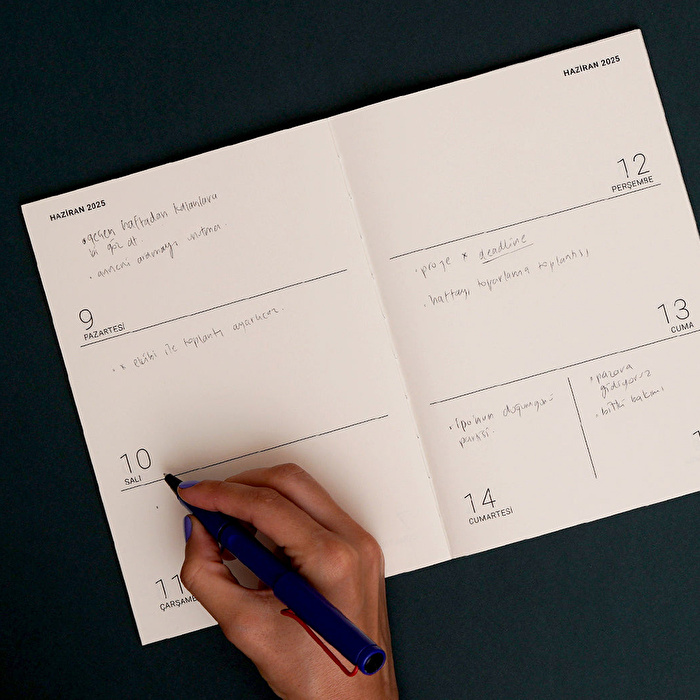 HAZİRAN 2025
geçen haftadan kalanlara
bi göz at.
anneni aramayı unutma.
9
PAZARTESİ
x ekibi ile toplantı ayarlıcaz.
10
SALI
11
HAZİRAN 2025
12
PERŞEMBE
proje x deadline
haftayı toparlama toplantısı
13
CUMA
doğumgünü
partisi.
14
CUMARTESİ
pazara
gidiyoruz
bitki bakımı